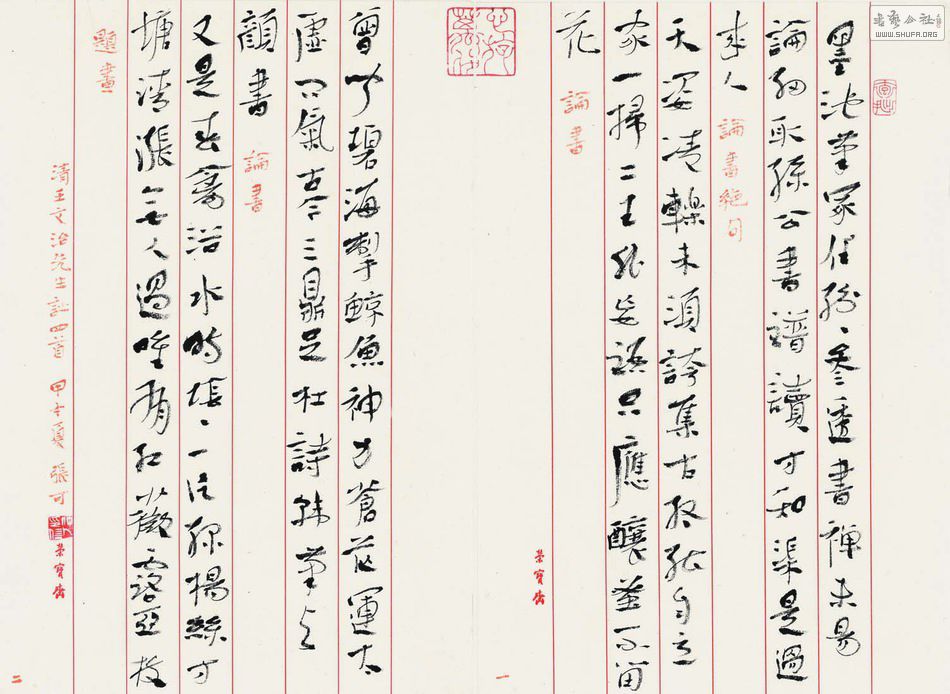 墨池筆冢任紛〻參透書禪未易
論細取孫公書譜讀方知渠是過
來人 論書絕句
天姿淩轢未須誇集古終能自立
家一掃二王非妄語只應釀蜜不留
花 論書
榮寶齋
一
曾聞碧海掣鯨魚神力蒼茫運太
虛間氣古今三鼎足杜詩韓筆與
顏書 論書
又是春禽浴水時一片綠楊絲方
塘清漲無人過唯有紅薇露亞枝
題畫
清王文治先生詩四首 甲午夏 張可
榮寶齋
二
書藝公社
WWW.SHUFA.ORG